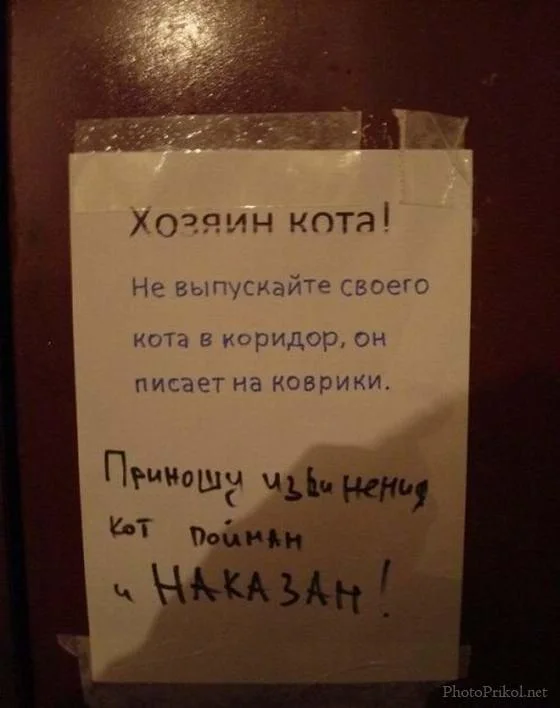 Хозяин кота!
Не выпускайте своего
кота в коридор, он
писает на коврики.
Приношу извинения
кот пойман
и НАКАЗАН!
PhotoPrikol.net